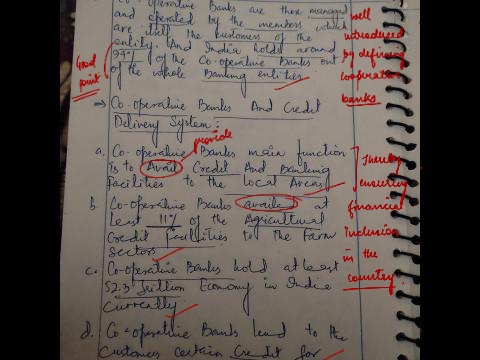 Co-operative Banks are those managed
and operated by the members which
are itself the customers of the
entity. And India holds around
94% of the Co-operative Banks out
of the whole Banking entities
Good
point
well
introduced
by defining
cooperative
banks
⇒ Co-operative Banks And Credit
Delivery System:
provide
a. Co-operative Banks main function
is to Avail Credit And Banking
facilities to the local Areas
b Co-operative Banks availed at
least 11% of the Agricultural
Credit facilities to the Farm
Sectors
thereby
ensuring
financial
inclusion
in the
country.
c. Co-operative Banks hold at least
52.3 trillion Economy in India
Currently
d. Co-operative Banks lend to the
Customers certain Credit for